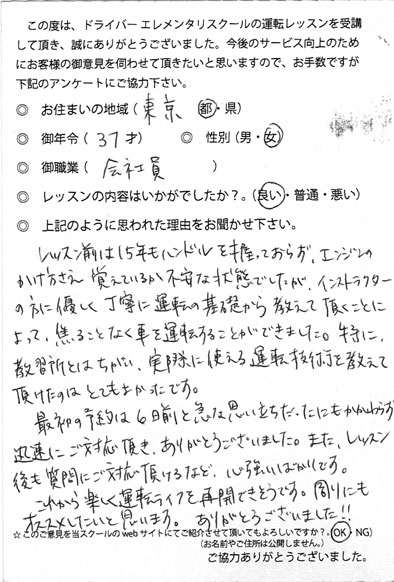 この度は、ドライバー エレメンタリスクールの運転レッスンを受講
して頂き、誠にありがとうございました。今後のサービス向上のため
にお客様の御意見を伺わせて頂きたいと思いますので、お手数ですが
下記のアンケートにご協力下さい。
◎ お住まいの地域（ 東京 都・県）
◎ 御年令（ 37才 ） ◎ 性別（男・女）
◎ 御職業（ 会社員 ）
◎ レッスンの内容はいかがでしたか？。（良い・普通・悪い）
◎ 上記のように思われた理由をお聞かせ下さい。
レッスン前は15年もハンドルを握っておらず、エンジンの
かけ方さえ覚えているか不安な状態でしたが、インストラクター
の方に優しく丁寧に運転の基礎から教えて頂くことに
よって、焦ることなく車を運転することができました。特に、
教習所とはちがい、実際に使える運転技術を教えて
頂けたのはとてもよかったです。
最初の予約は6日前と急な思い立ちだったにもかかわらず
迅速にご対応頂き、ありがとうございました。また、レッスン
後も質問にご対応頂けるなど、心強いばかりです。
これから楽しく運転ライフを再開できそうです。周りにも
オススメしたいと思います。ありがとうございました!!
☆このご意見を当スクールの web サイトにてご紹介させて頂いてもよろしいですか？。（OK・NG）
（お名前やご住所は公開しません。）
ご協力ありがとうございました。